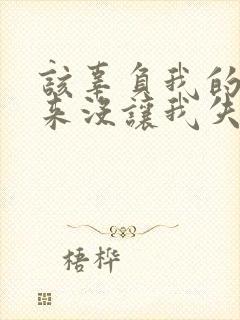 該辜負我的
來沒讓我失
梧桦